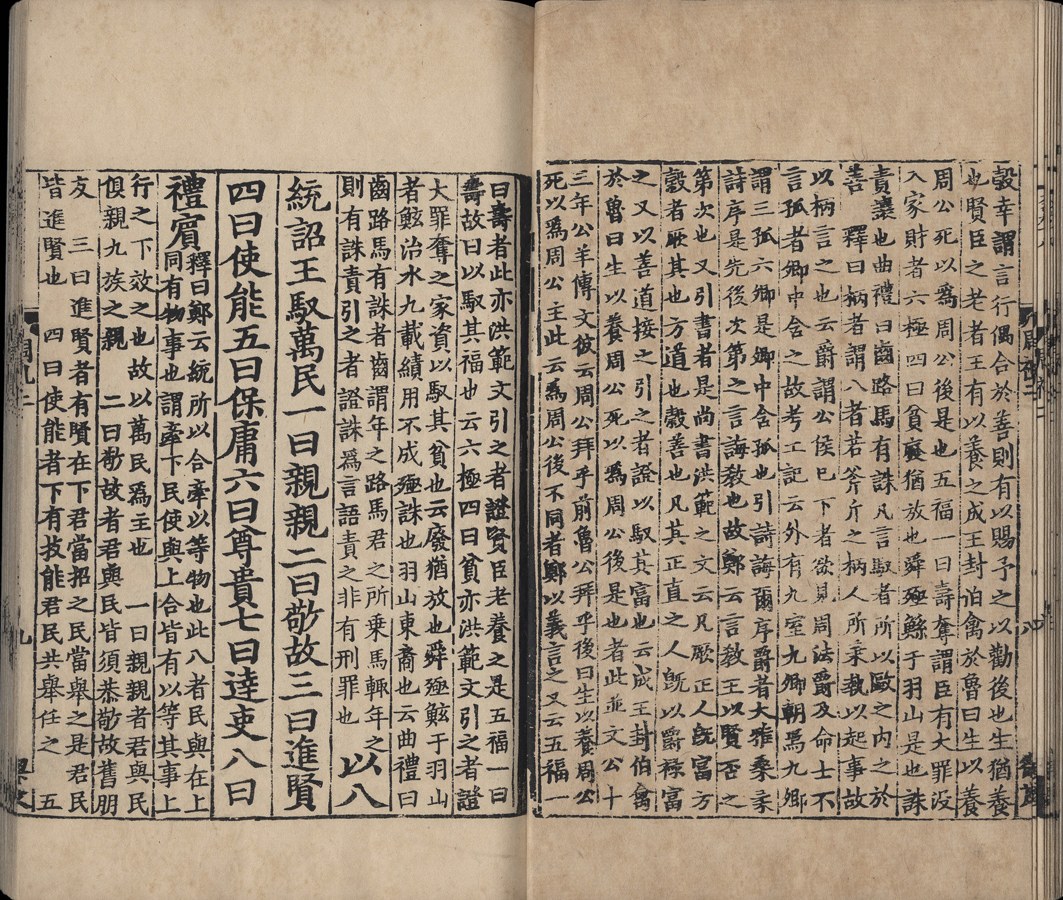 穀幸謂言行偶合於善則有以賜予之以勸後也生猶養
也賢臣之老者王有以養之成王封伯禽於魯曰生以養
周公死以爲周公後是也五福一曰壽奪謂臣有大罪没
入家財者六極四曰貧廢猶放也舜殛鯀于羽山是也誅
責讓也曲禮曰齒路馬有誅凡言馭者所以歐之内之於
善　釋曰柄者謂八者若斧斤之柄人所秉執以起事故
以柄言之也云爵謂公侯巳下者欲見周法爵及命士不
言孤者卿中含之故考工記云外有九室九卿朝焉九卿
謂三孤六卿是卿中含孤也引詩誨爾序爵者大雅桑柔
詩序是先後次第之言誨敎也故鄭云言敎王以賢否之
第次也又引書者是尚書洪範之文云凡厥正人旣富方
穀者厥其也方道也穀善也凡其正直之人旣以爵禄富
之又以善道接之引之者證以馭其富也云成王封伯禽
於魯曰生以養周公死以爲周公後是也者此並文公十
三年公羊傳文彼云周公拜乎前魯公拜乎後曰生以養周公
死以爲周公主此云爲周公後不同者鄭以義言之又云五福一
曰壽者此亦洪範文引之者證賢臣老養之是五福一曰
壽故曰以馭其福也云六極四曰貧亦洪範文引之者證
大罪奪之家資以馭其貧也云廢猶放也舜殛鯀于羽山
者鯀治水九載績用不成殛誅也羽山東裔也云曲禮曰
齒路馬有誅者齒謂年之路馬君之所乗馬輒年之
則有誅責引之者證誅爲言語責之非有刑罪也
以八
統詔王馭萬民一曰親親二曰敬故三曰進賢
四曰使能五曰保庸六曰尊貴七曰達吏八曰
禮賔
釋曰鄭云統所以合牽以等物也此八者民與在上
同有物事也謂牽下民使與上合皆有以等其事上
行之下效之也故以萬民爲主也　一曰親親者君與民
俱親九族之親　二曰敬故者君與民皆須恭敬故舊朋
友　三曰進賢者有賢在下君當招之民當舉之是君民
皆進賢也　四曰使能者下有技能君民共舉任之　五